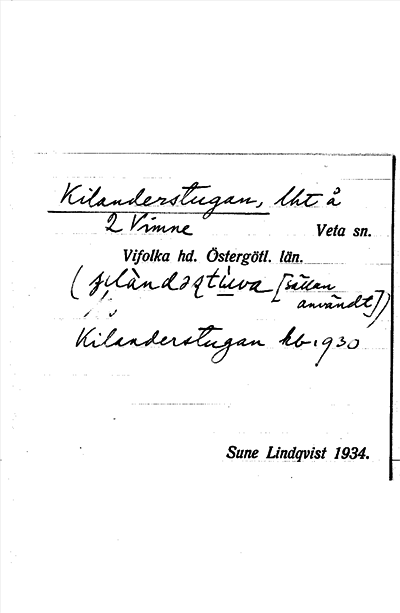 Kilanderstugan, lht å
2 Vimne Veta sn.
Vifolka hd. Östergötl. län.
( [sällan
användt])
Kilanderstugan kb. 1930
Sune Lindqvist 1934.